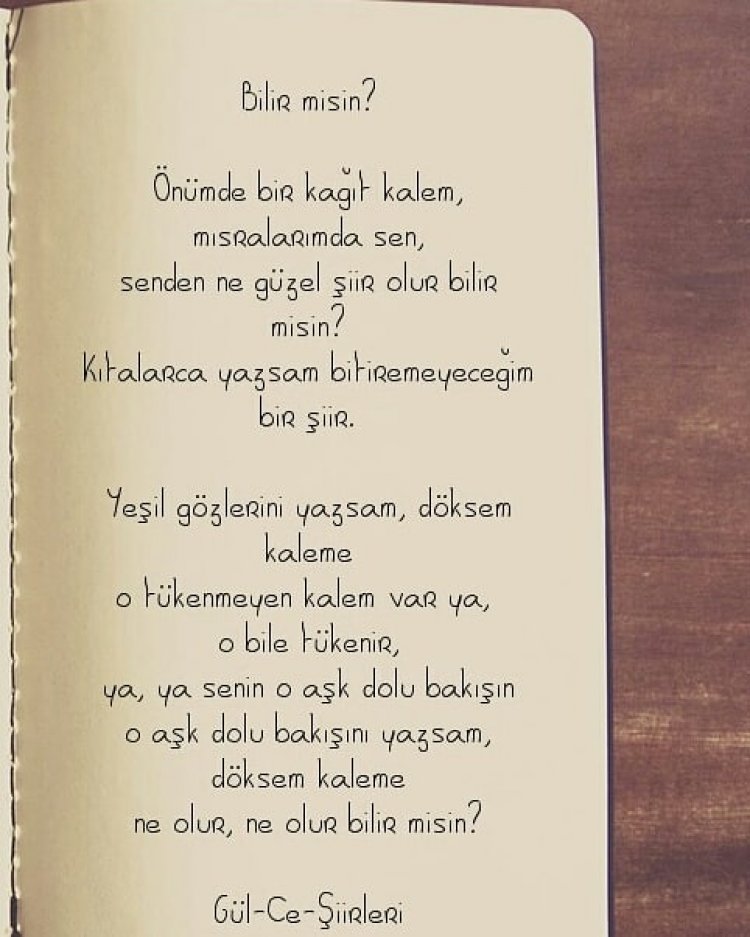 Bilir misin?
Önümde bir kağıt kalem,
mısralarımda sen,
senden ne güzel şiir olur bilir
misin?
Kıtalarca yazsam bitiremeyeceğim
bir şiir.
Yeşil gözlerini yazsam, döksem
kaleme
o tükenmeyen kalem var ya,
o bile tükenir,
ya, ya senin o aşk dolu bakışın
o aşk dolu bakışını yazsam,
döksem kaleme
ne olur, ne olur bilir misin?
Gül-Ce-Şiirleri